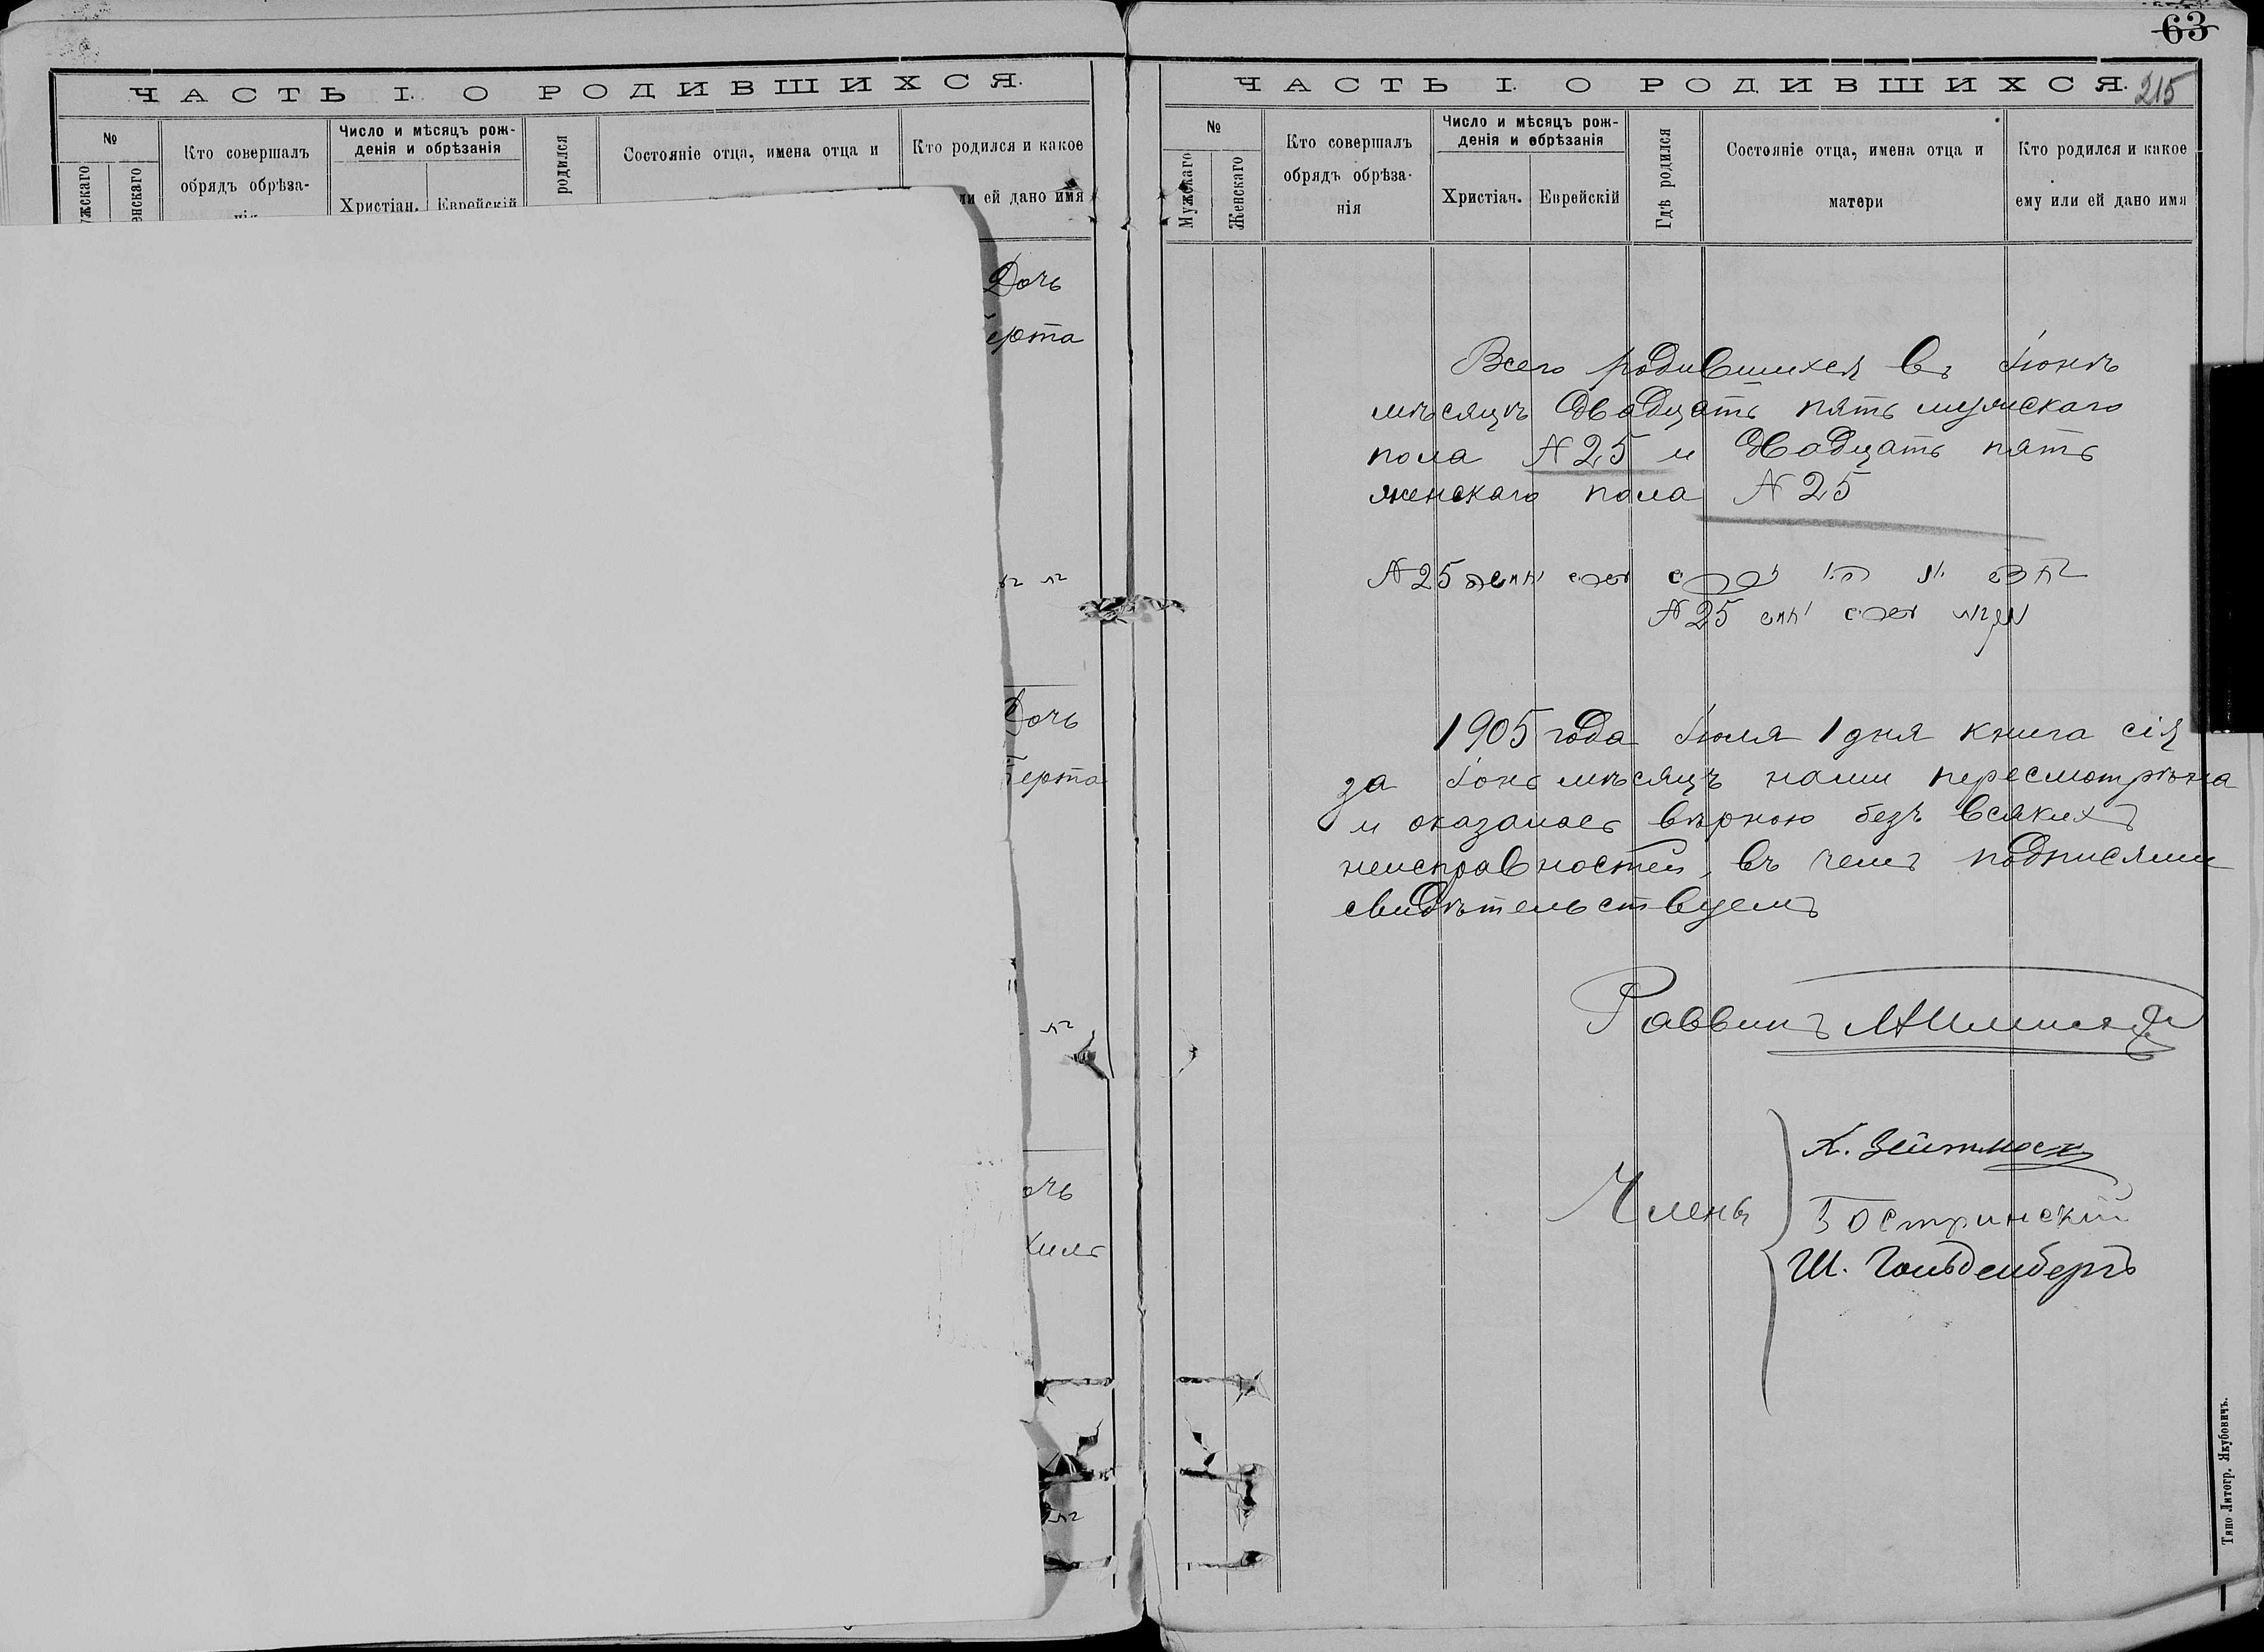 ЧАСТЬ I. О РОДИВШИХСЯ.
№
Кто совершалъ
обрядъ обрѣза-
Число и мѣсяцъ рож-
денія и обрѣзанія
Христіан.
Еврейскій
родился
Состояніе отца, имена отца и
Кто родился и какое
ли ей дано имя
Дочь
ерта
Дочь
Берта
очь
63
215
ЧАСТЬ I. О РОДИВШИХСЯ.
№
Мужскаго
Женскаго
Кто совершалъ
обрядъ обрѣза-
нія
Число и мѣсяцъ рож-
денія и обрѣзанія
Христіан.
Еврейскій
Гдѣ родился
Состояніе отца, имена отца и
матери
Кто родился и какое
ему или ей дано имя
Всего родившихся въ Іюнѣ
мѣсяцѣ двадцать пять мужскаго
пола № 25 и двадцать пять
женскаго пола № 25
№ 25
№ 25
1905 года Іюля 1 дня книга сія
за Іюнь мѣсяцъ нами пересмотрѣна
и оказалась вѣрною безъ всякихъ
неисправностей, въ чемъ подписями
свидѣтельствуемъ
Раввинъ
Члены
Х.
Гостринскій
Ш. Гольденбергъ
Типо Литогр. Якубовичъ.